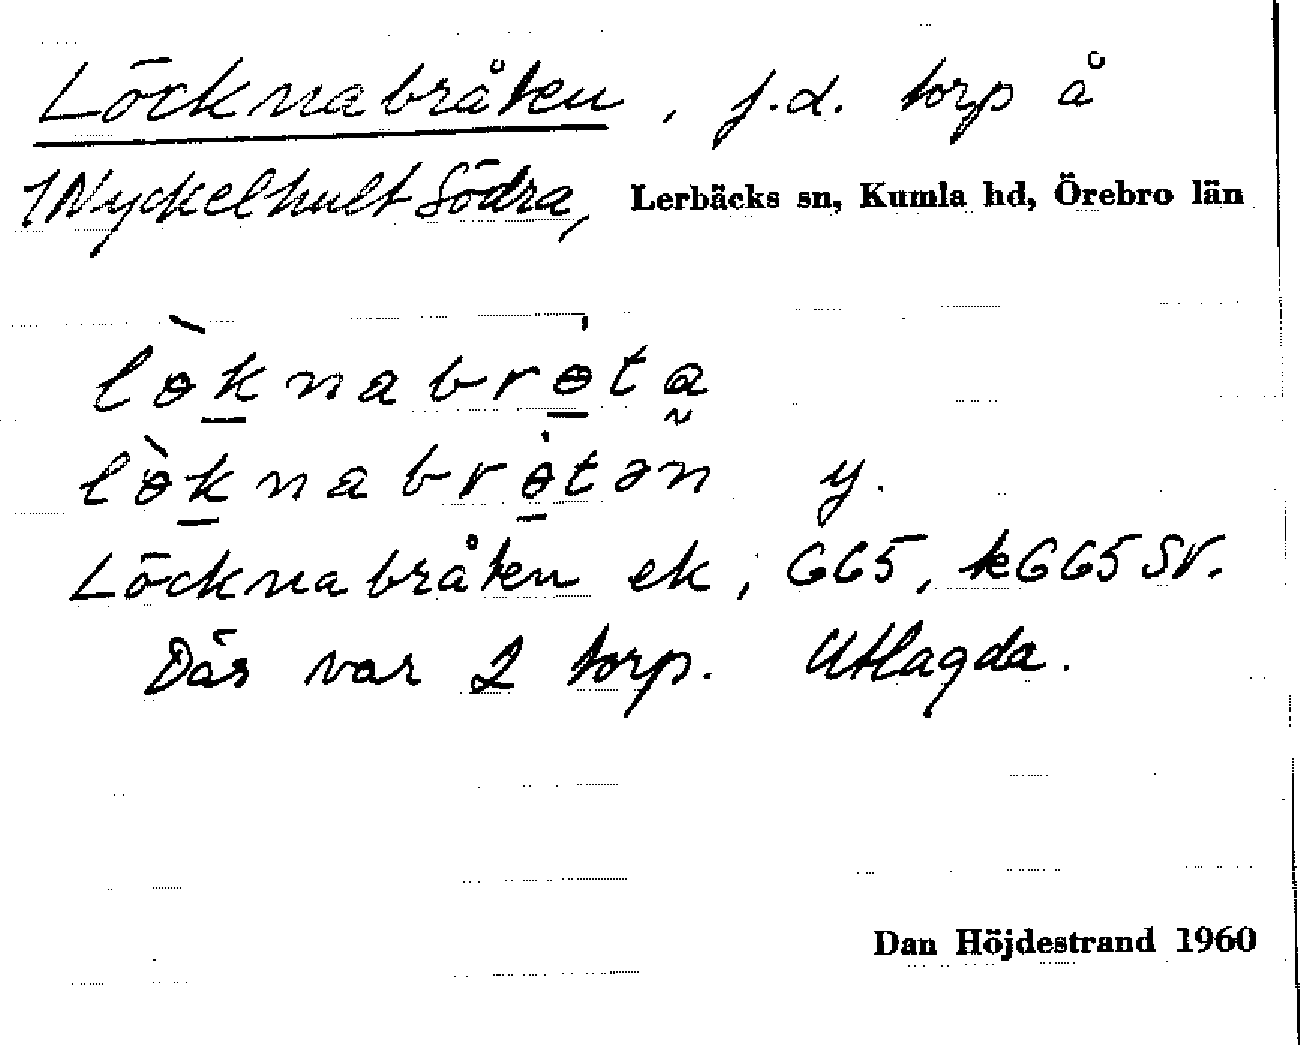 Löcknabråten, f.d. torp å
1 Nyckelhult Södra, Lerbäcks sn, Kumla hd, Örebro län
lɵ̀knabrɵta
lɵ̀knabrɵtən y.
Löcknabråten ek, GG5, kGG5 SV.
Där var 2 torp. Utlagda.
Dan Höjdestrand 1960